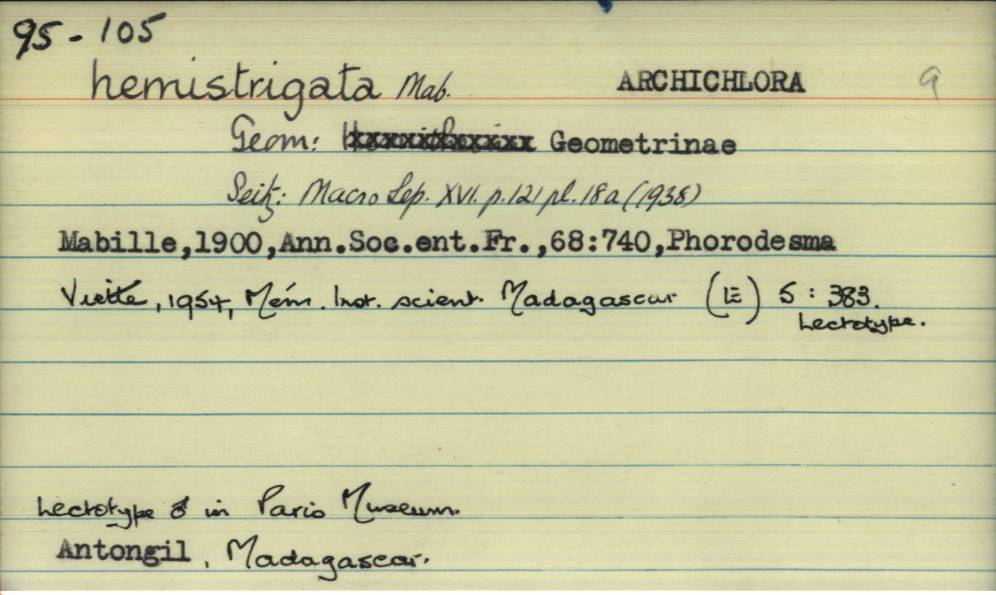 95 - 105
hemistrigata Mab. ARCHICHLORA 9
Geom: Geometrinae
Seitz: Macro Lep. XVI. p.121 pl.18a (1938)
Mabille,1900,Ann.Soc.ent.Fr.,68:740,Phorodesma
Viette, 1954, Mém. Inst. scient. Madagascar (E) 5 : 383.
Lectotype.
Lectotype ♂ in Paris Museum.
Antongil, Madagascar.